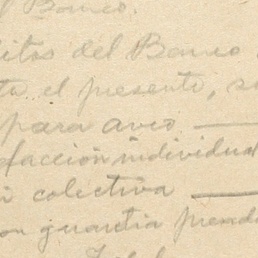 l Banco.
itos del Banco
ta el presente, s
para avio
facción individual
n colectiva
on guardia prenda